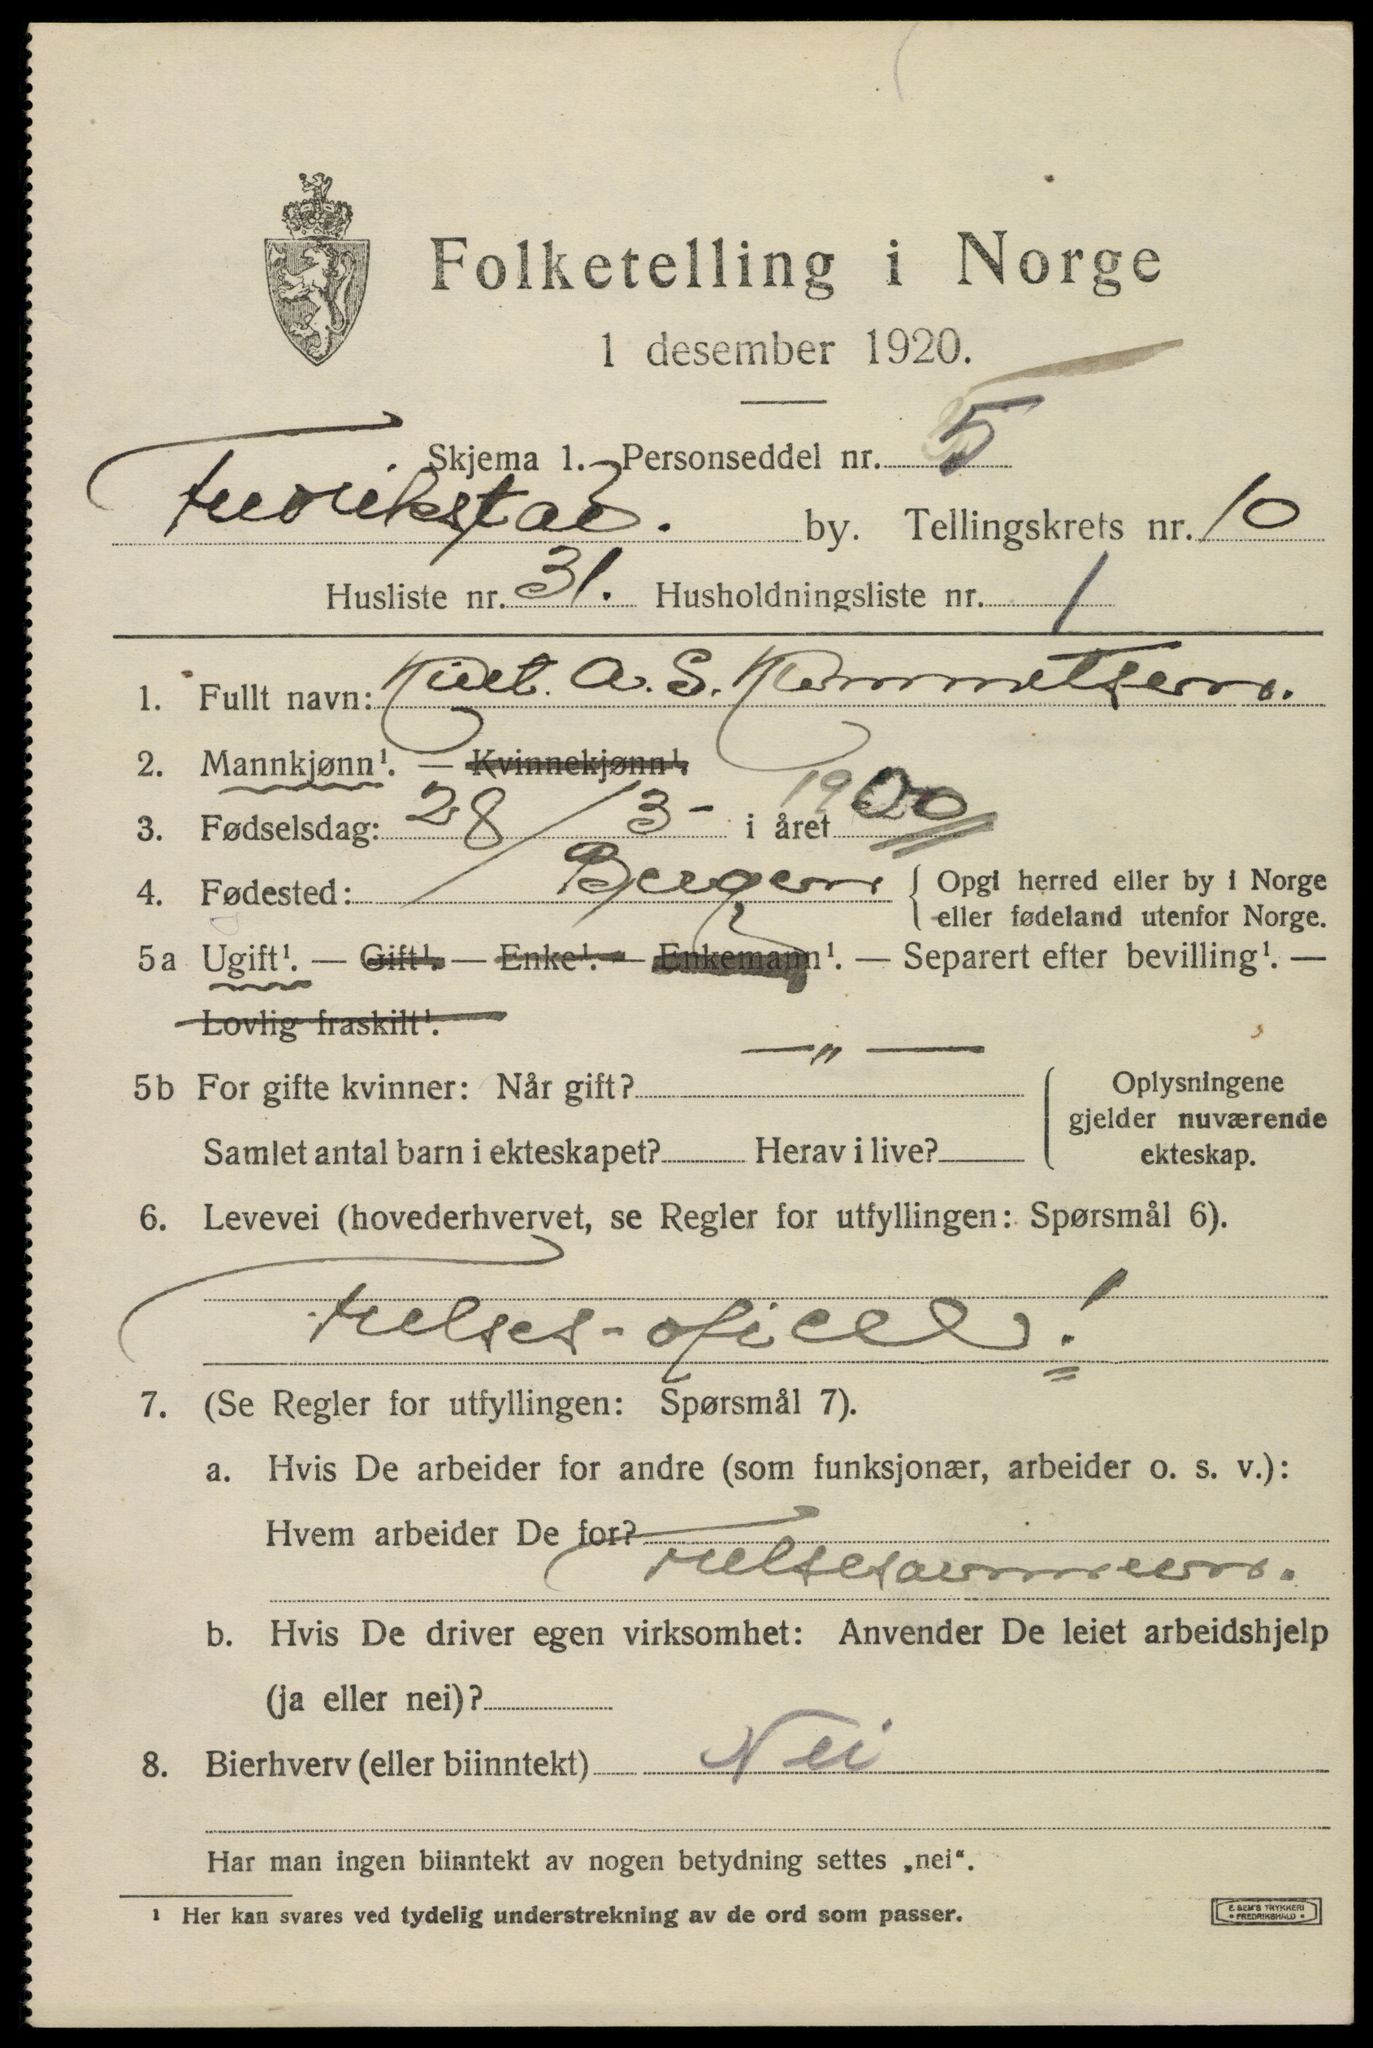 Folketelling i Norge
1 desember 1920.
Skjema 1. Personseddel nr. 5
Fredrikstad. by. Tellingskrets nr. 10
Husliste nr. 31. Husholdningsliste nr. 1
1. Fullt navn: A. S.
2. Mannkjønn¹. — Kvinnekjønn¹.
3. Fødselsdag: 28/3- i året 1900
4. Fødested: Bergen { Opgi herred eller by i Norge
eller fødeland utenfor Norge.
5a Ugift¹. — Gift¹. — Enke¹. — Enkemann¹. — Separert efter bevilling¹. —
Lovlig fraskilt¹.
— „ —
5b For gifte kvinner: Når gift? { Oplysningene
gjelder nuværende
Samlet antal barn i ekteskapet? Herav i live? ekteskap.
6. Levevei (hovederhvervet, se Regler for utfyllingen: Spørsmål 6).
Frelses-oficer!
7. (Se Regler for utfyllingen: Spørsmål 7).
a. Hvis De arbeider for andre (som funksjonær, arbeider o. s. v.):
Hvem arbeider De for?
Frelsesarmeen.
b. Hvis De driver egen virksomhet: Anvender De leiet arbeidshjelp
(ja eller nei)?
8. Bierhverv (eller biinntekt) Nei
Har man ingen biinntekt av nogen betydning settes „nei“.
¹ Her kan svares ved tydelig understrekning av de ord som passer.
E. SEM'S TRYKKERI
• FREDRIKSHALD •